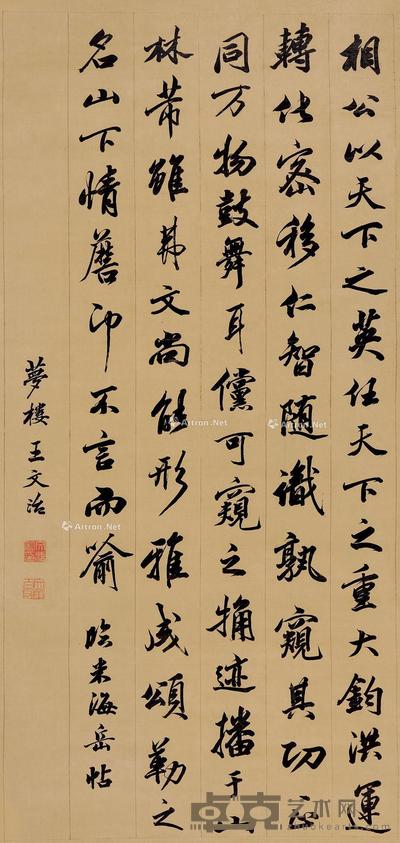 相公以天下之英任天下之重大鈞洪運
轉化密移仁智随識孰窺其功正
同万物鼓舞耳儻可窺之迹播于山
林芾雖弗文尚能形雅成頌勒之
名山下情不言而喻 臨米海岳帖
夢樓王文治
Artron.Net
Artron.Net
Artron.Net
Artron.Net
卓克艺术网